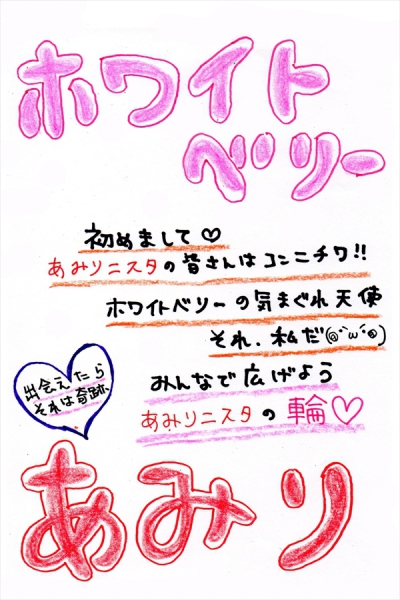 ホワイト
ベリー
初めまして♡
あみリニスタの皆さんはコンニチワ!!
ホワイトベリーの気まぐれ天使
それ、私だ(๑˘ω˘๑)
みんなで広げよう
あみリニスタの輪♡
出会えたら
それは奇跡
あみり